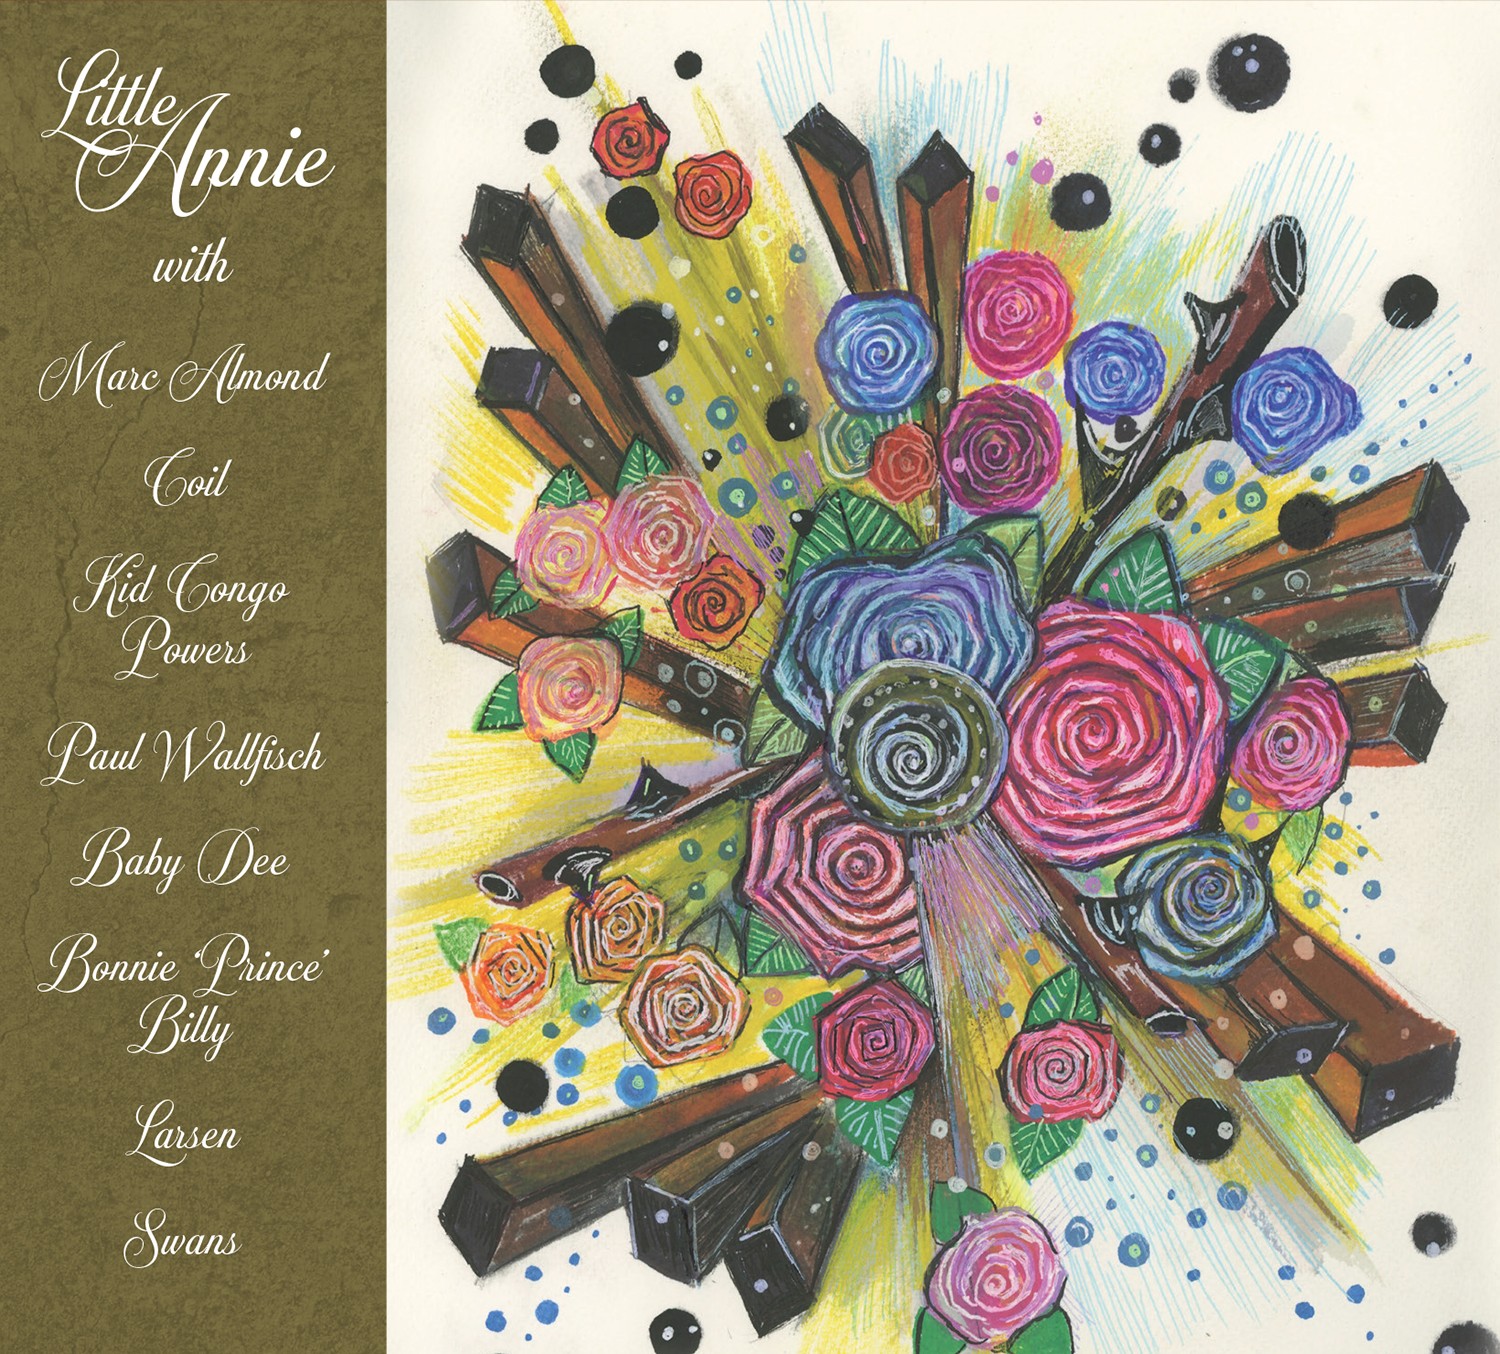 Little
Annie
with
Marc Almond
Coil
Kid Congo
Powers
Paul Wallfisch
Baby Dee
Bonnie ‘Prince’
Billy
Larsen
Swans